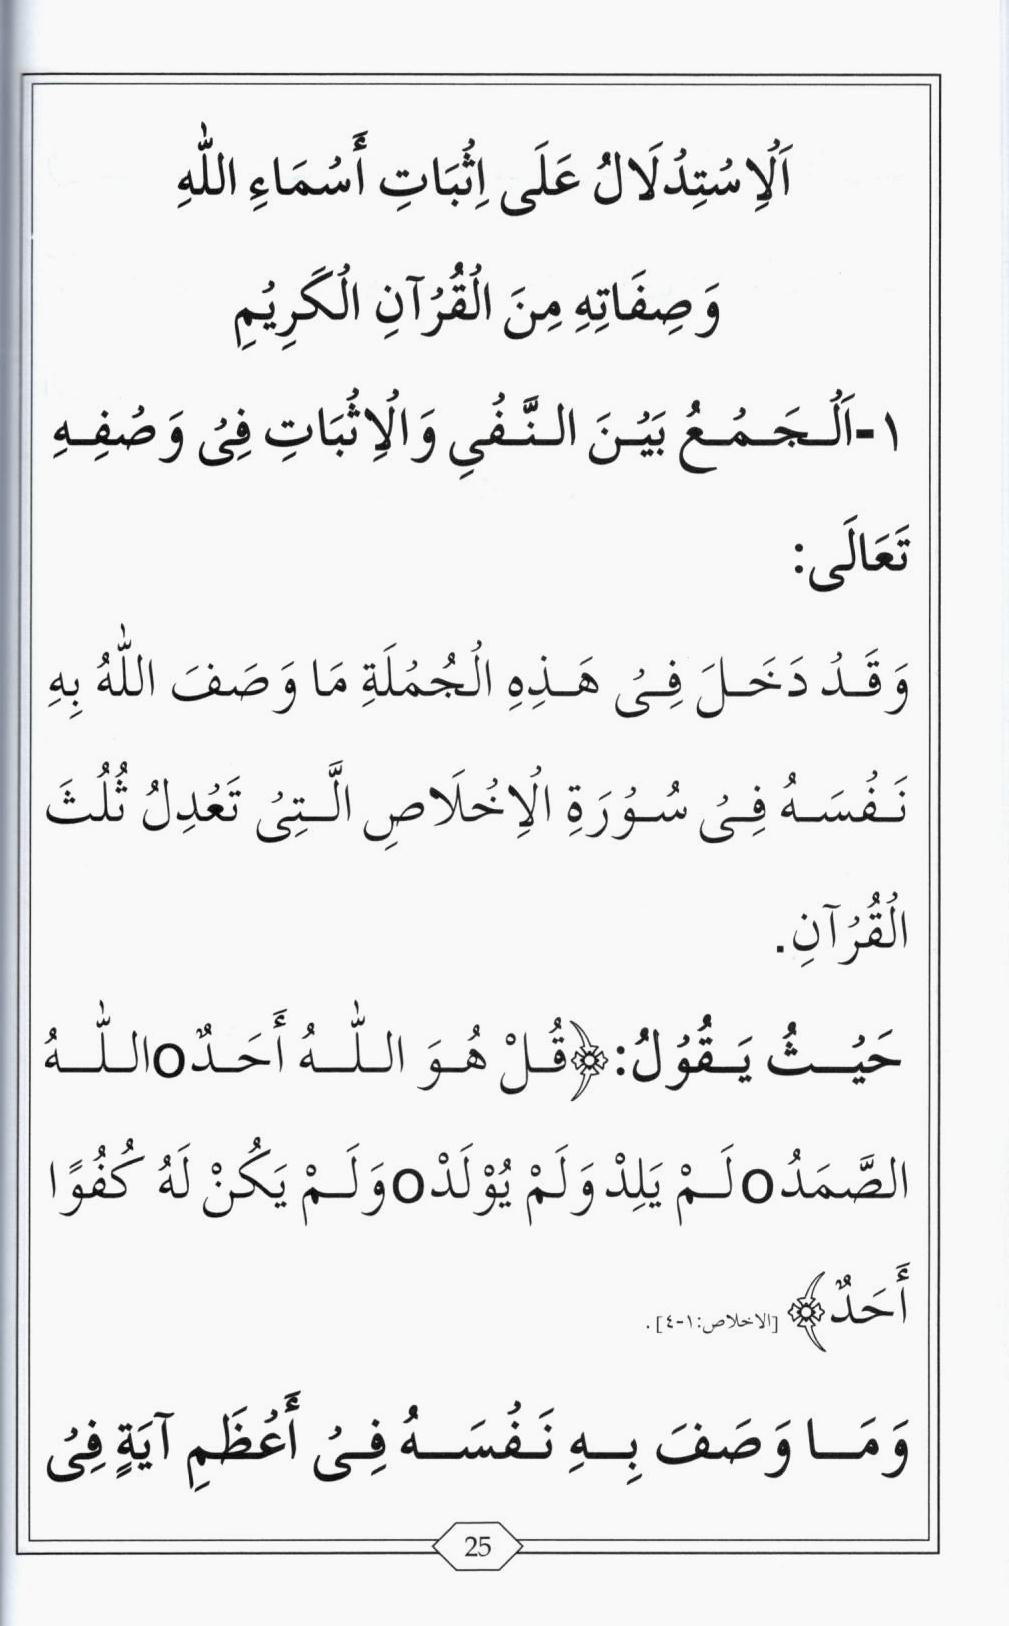 اَلْاِسْتِدْلَالُ عَلَى اِثْبَاتِ أَسْمَاءِ اللّٰهِ
وَصِفَاتِهِ مِنَ الْقُرْآنِ الْكَرِيْمِ
١-اَلْجَمْعُ بَيْنَ النَّفْيِ وَالْاِثْبَاتِ فِيْ وَصْفِهِ
تَعَالَى:
وَقَدْ دَخَلَ فِيْ هَذِهِ الْجُمْلَةِ مَا وَصَفَ اللّٰهُ بِهِ
نَفْسَهُ فِيْ سُوْرَةِ الْاِخْلَاصِ الَّتِيْ تَعْدِلُ ثُلُثَ
الْقُرْآنِ.
حَيْثُ يَقُوْلُ:﴿قُلْ هُوَ اللّٰهُ أَحَدٌ٥اللّٰهُ
الصَّمَدُ٥لَمْ يَلِدْ وَلَمْ يُوْلَدْ٥وَلَمْ يَكُنْ لَهُ كُفُوًا
أَحَدٌ﴾ [الاخلاص:١-٤].
وَمَا وَصَفَ بِهِ نَفْسَهُ فِيْ أَعْظَمِ آيَةٍ فِيْ
25